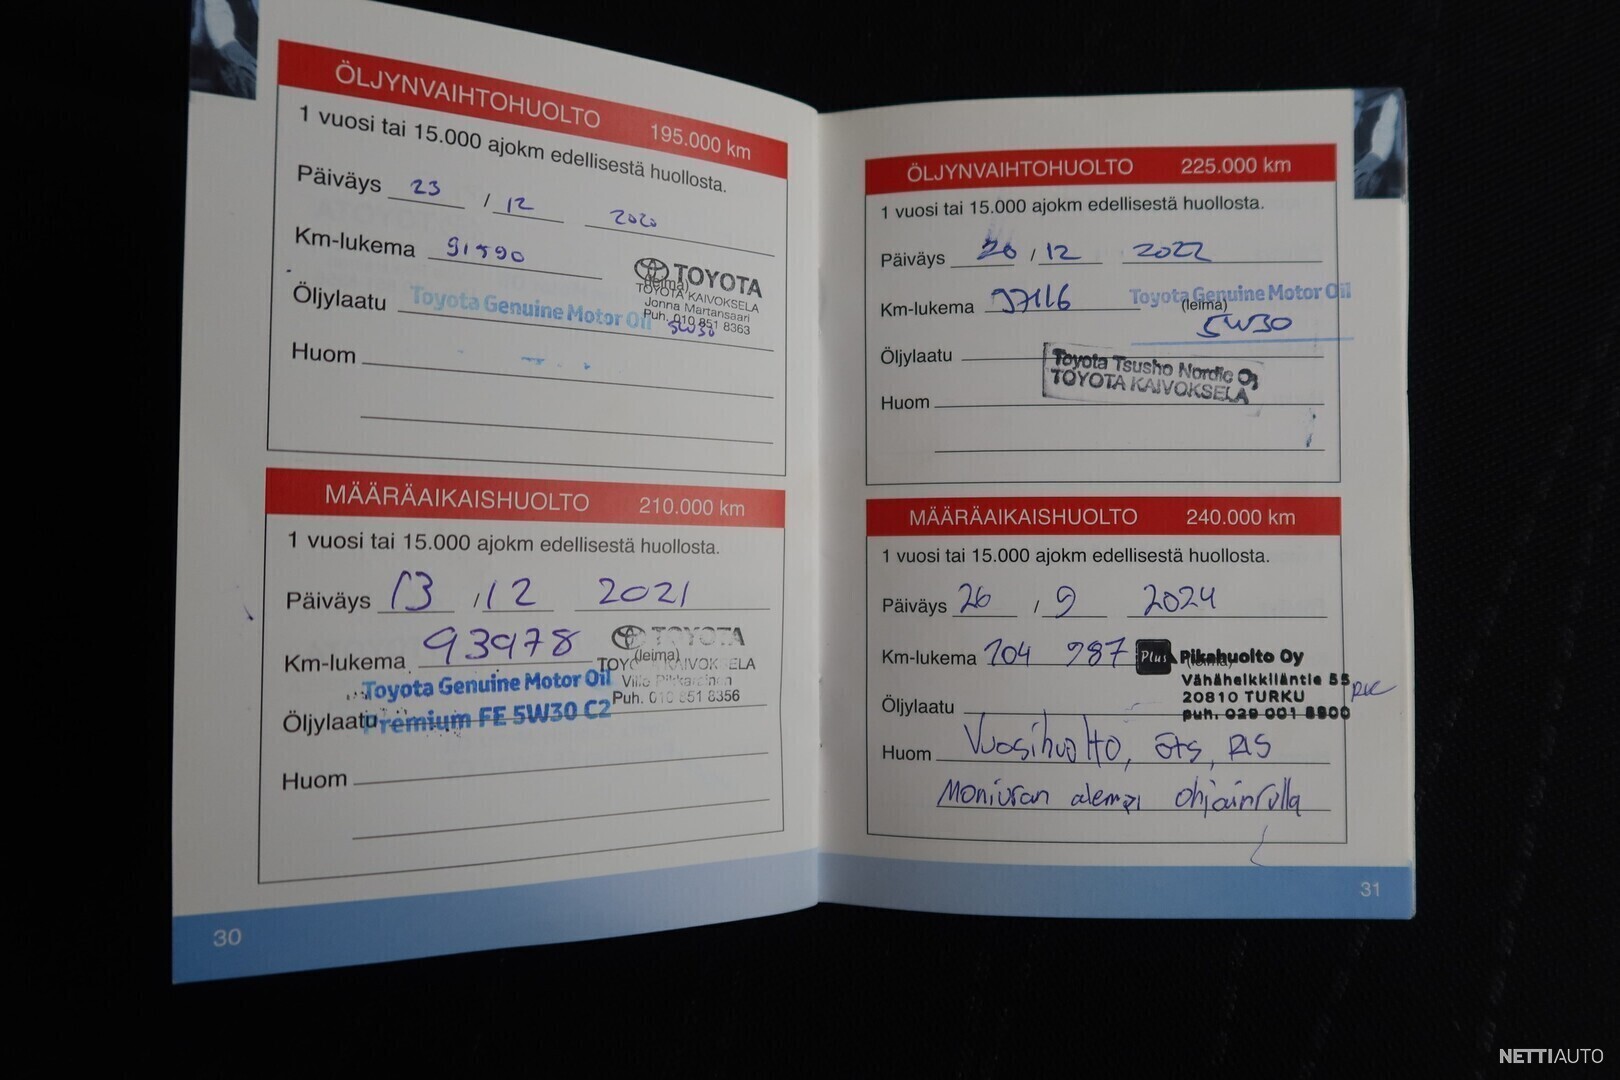 ÖLJYNVAIHTOHUOLTO 195.000 km
1 vuosi tai 15.000 ajokm edellisestä huollosta.
Päiväys 23 / 12 2020
Km-lukema 91590
TOYOTA
(leima)
TOYOTA KAIVOKSELA
Jonna Martansaari
Puh. 010 851 8363
Öljylaatu Toyota Genuine Motor Oil 5W30
Huom
MÄÄRÄAIKAISHUOLTO 210.000 km
1 vuosi tai 15.000 ajokm edellisestä huollosta.
Päiväys 13 / 12 2021
Km-lukema 93978
TOYOTA
(leima)
TOYOTA KAIVOKSELA
Puh. 010 851 8356
Toyota Genuine Motor Oil
Öljylaatu Premium FE 5W30 C2
Huom
30
ÖLJYNVAIHTOHUOLTO 225.000 km
1 vuosi tai 15.000 ajokm edellisestä huollosta.
Päiväys 20 / 12 2022
Km-lukema 97116
Toyota Genuine Motor Oil
(leima)
5W30
Öljylaatu
Toyota Tsusho Nordic Oy
TOYOTA KAIVOKSELA
Huom
MÄÄRÄAIKAISHUOLTO 240.000 km
1 vuosi tai 15.000 ajokm edellisestä huollosta.
Päiväys 26 / 9 2024
Km-lukema 104 987
Plus Pikahuolto Oy
(leima)
Vähäheikkiläntie 55
20810 TURKU
puh. 029 001 8800
Öljylaatu
Huom Vuosihuolto,
Moniuran alempi ohjainrulla
31
NETTIAUTO